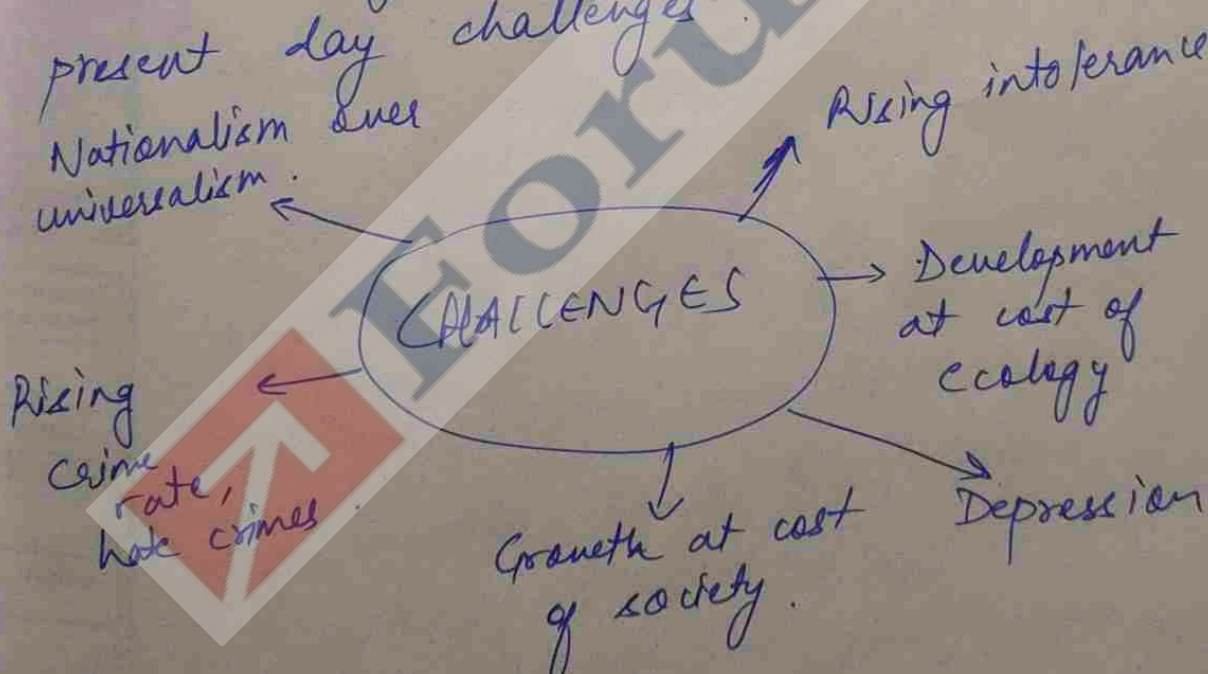 present day challenges.
Nationalism over
universalism.
Rising intolerance
CHALLENGES
Development
at cost of
ecology
Rising
crime
rate,
hate crimes.
Growth at cost
of society.
Depression
Foru